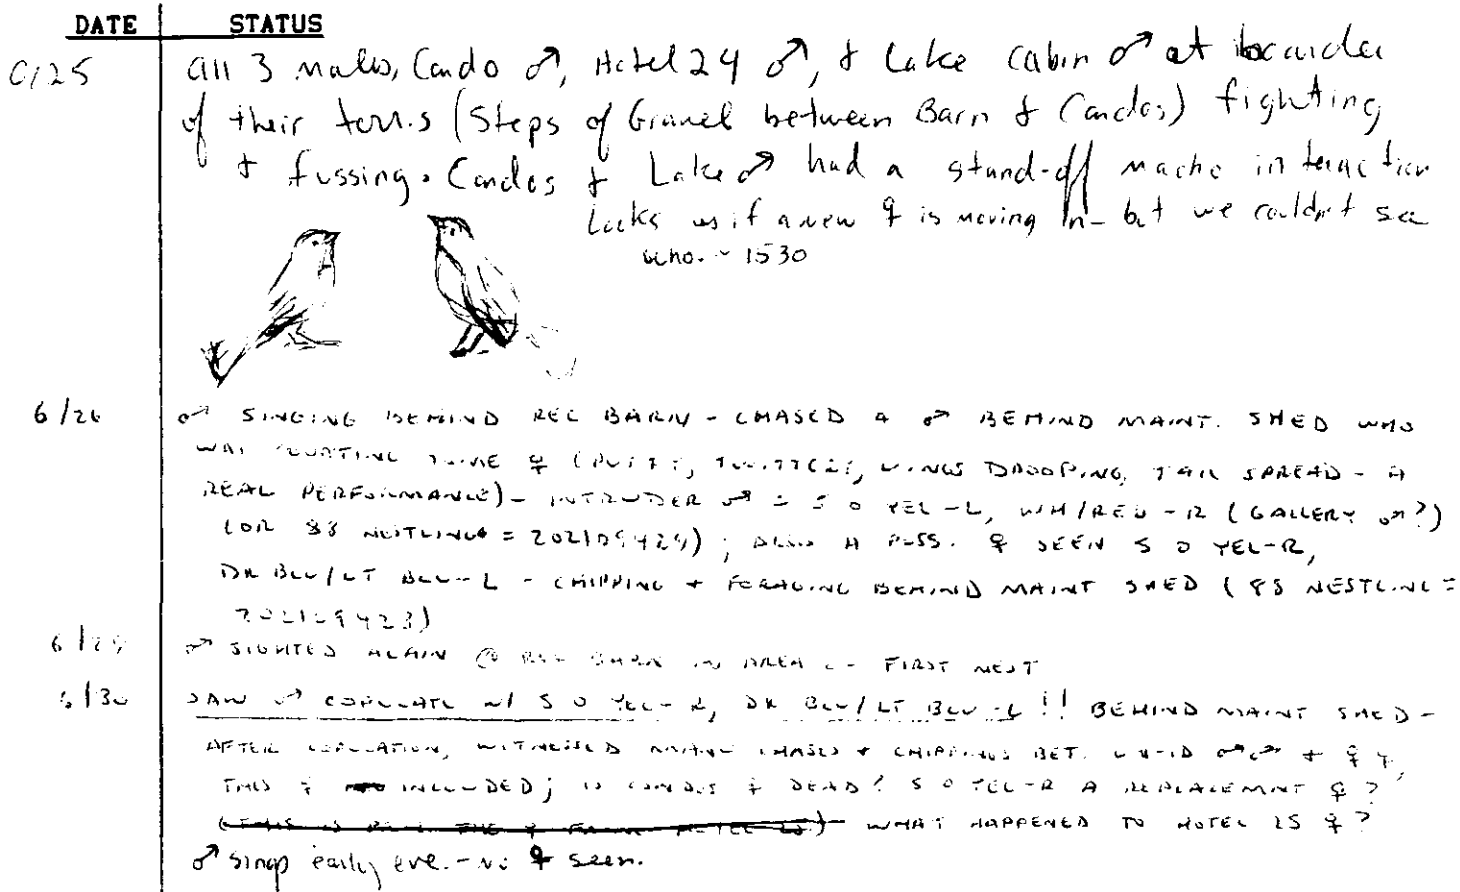 DATE STATUS
6/25 all 3 males, Condo ♂, Hotel 24 ♂, + Lake cabin ♂ at border
of their terr.s (Steps of Gravel between Barn + Condos) fighting
+ fussing. Condos + Lake ♂ had a stand-off macho interaction
Looks as if a new ♀ is moving in - but we couldn't see
who. ~ 1530
6/26 ♂ SINGING BEHIND REC BARN - CHASED A ♂ BEHIND MAINT. SHED WHO
WAS COURTING SOME ♀ (PUFFS, TWITTERS, WINGS DROOPING, TAIL SPREAD - A
REAL PERFORMANCE) - INTRUDER ♂ = S O YEL-L, WH/RED-R (GALLERY ♂?)
(OR 88 NESTLING = ; ALSO A POSS. ♀ SEEN S O YEL-R,
DK BLU/LT BLU-L - CHIPPING + FORAGING BEHIND MAINT SHED (88 NESTLING =
♂ SIGHTED AGAIN @ REC BARN IN AREA - FIRST NEST
6/30 SAW ♂ COPULATE W/ S O YEL-R, DK BLU/LT BLU-L!! BEHIND MAINT SHED -
AFTER COPULATION, WITNESSED MANY CHASES + CHIPPINGS BET. UN-ID ♂♂ + ♀♀,
THIS ♀ INCLUDED; IS CONDOS ♀ DEAD? S O YEL-R A REPLACEMENT ♀?
WHAT HAPPENED TO HOTEL 25 ♀?
♂ sings early eve. - no ♀ seen.